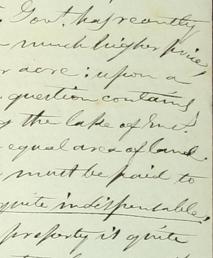 Govt. has recently
much higher price,
acre; upon a
question contains
the lake of
equal area of land.
must be paid to
quite indispensable,
property is quite